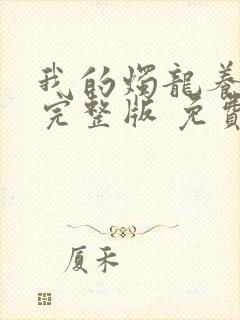 我的燭龍養
完整版 免費
厦禾